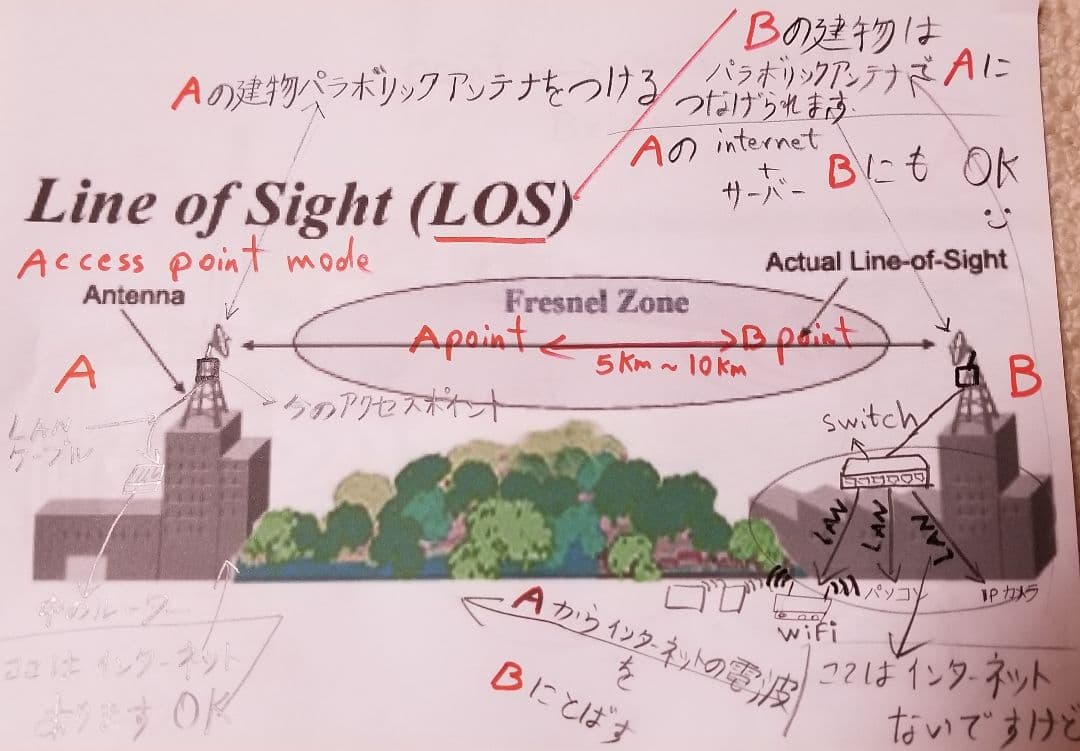 Aの建物パラボリックアンテナをつける
Bの建物は
パラボリックアンテナで Aに
つなげられます
Aの internet
+
サーバー
Bにも OK
Line of Sight (LOS)
Access point mode
Antenna
Actual Line-of-Sight
Fresnel Zone
A point
B point
5Km ~ 10Km
A
B
LAN
ケーブル
今のアクセスポイント
switch
LAN
LAN
LAN
パソコン
IP カメラ
WiFi
中のルーター
ここは インターネット
あります OK
Aからインターネットの電波
を
Bにとばす
ここはインターネット
ないですけど